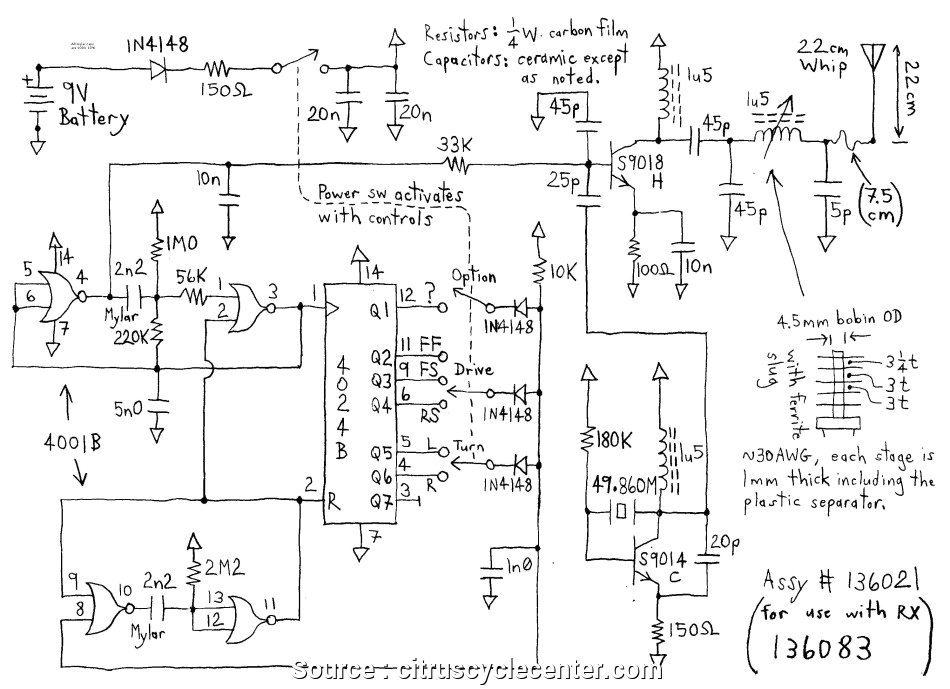 1N4148
150Ω
+
9V
Battery
20n
20n
Resistors: 1/4 W. carbon film
Capacitors: ceramic except
as noted.
45p
1u5
45p
22cm
Whip
22cm
1u5
33K
S9018
H
25p
10n
Power sw activates
with controls
45p
5p
(7.5
cm)
100Ω
10n
14
5
6
4
7
2n2
Mylar
1M0
56K
220K
1
2
3
5n0
4001B
14
1
4024B
Q1
12 ?
Option
10K
1N4148
Q2
11 FF
Q3
9 FS
Drive
Q4
6
RS
1N4148
Q5
5 L
Turn
Q6
4
R
1N4148
Q7
3
2
R
7
1n0
4.5mm bobin OD
with ferrite
slug
3 1/4 t
3t
3t
~30AWG, each stage is
1mm thick including the
plastic separator.
180K
1u5
49.860M
S9014
C
20p
150Ω
9
8
10
2n2
Mylar
2M2
13
12
11
Assy # 136021
(for use with RX
136083)
Source : citruscyclecenter.com